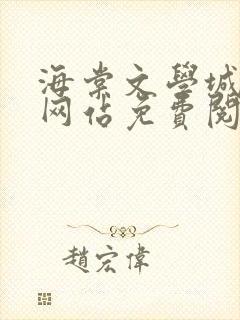 海棠文學城
网站免費閱
趙宏偉